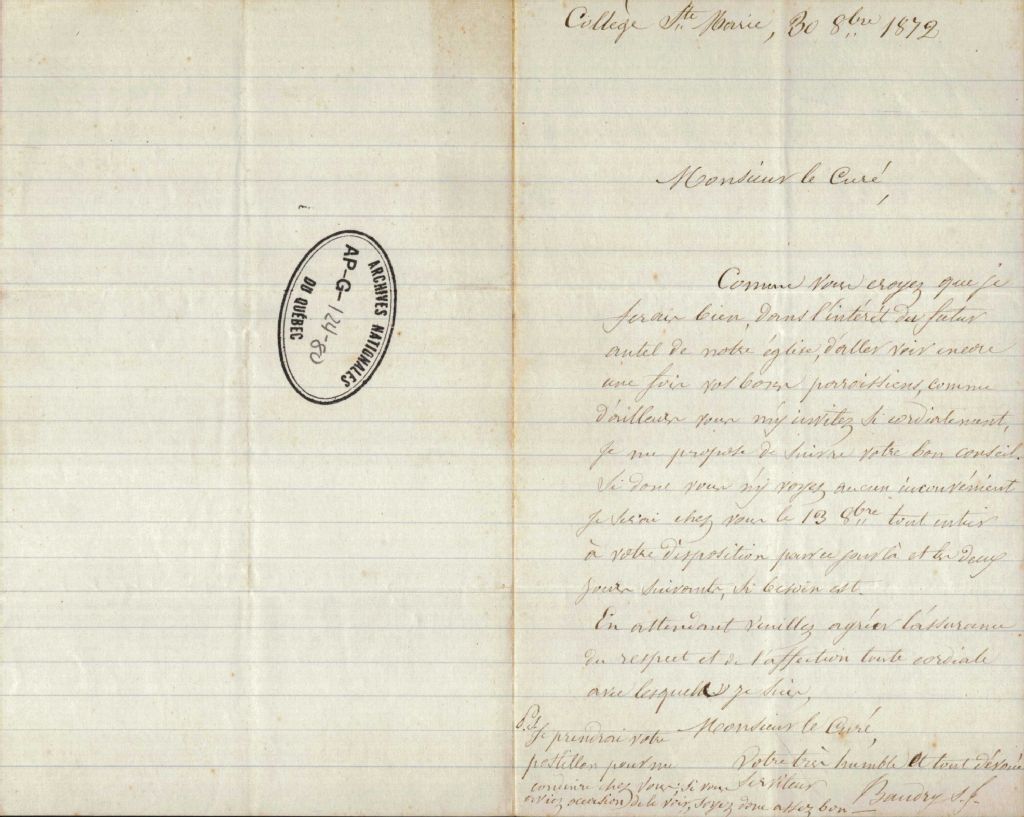 ARCHIVES NATIONALES
DU QUÉBEC
AP-G-124-80
Collège Ste Marie, 30 8bre 1872
Monsieur le Curé,
Comme vous croyez que je
ferais bien, dans l'intérêt du futur
autel de notre église, d'aller voir encore
une fois vos bons paroissiens, comme
d'ailleurs vous m'y invitez si cordialement,
je me propose de suivre votre bon conseil.
Si donc vous n'y voyez aucun inconvénient
je serai chez vous le 13 8bre tout entier
à votre disposition pour ce jour là et les deux
jours suivants, si besoin est.
En attendant veuillez agréer l'assurance
du respect et de l'affection toute cordiale
avec lesquels je suis,
Monsieur le Curé,
Votre très humble et tout dévoué
Serviteur
Baudry s.j.
P.S. Je prendrai votre
postillon pour me
conduire chez vous; si vous
aviez occasion de le voir, soyez donc assez bon